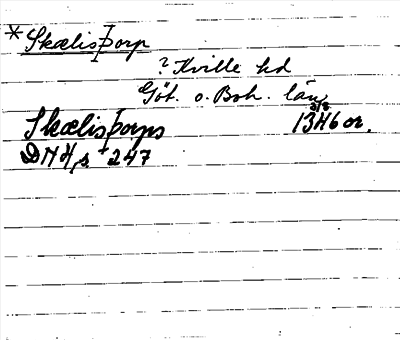 * Skælisþorp
? Kville hd
Göt. o. Boh. län
Skælisþorps 13 3/8 46 or.
DN 4, s. 247